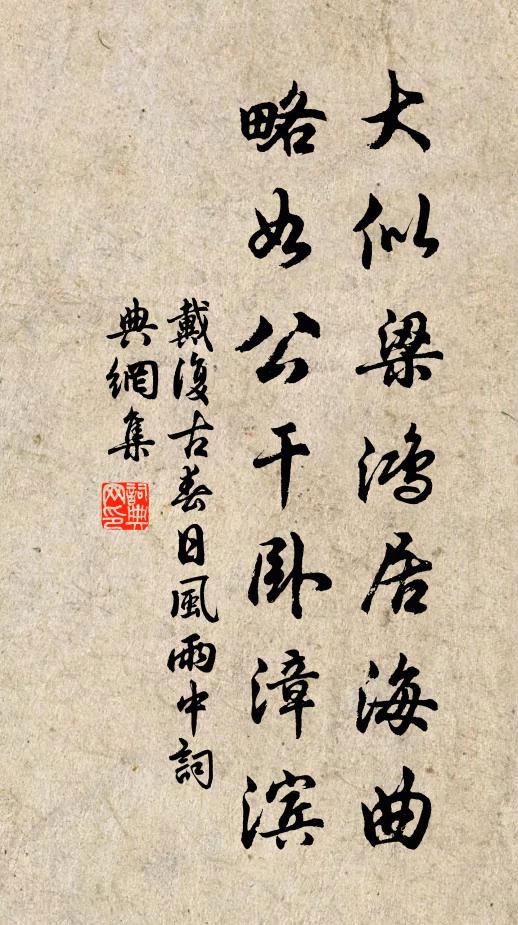 大似梁鸿居海曲
略如公干卧漳滨
戴復古春日風雨中詞
典網集
詞典
网印